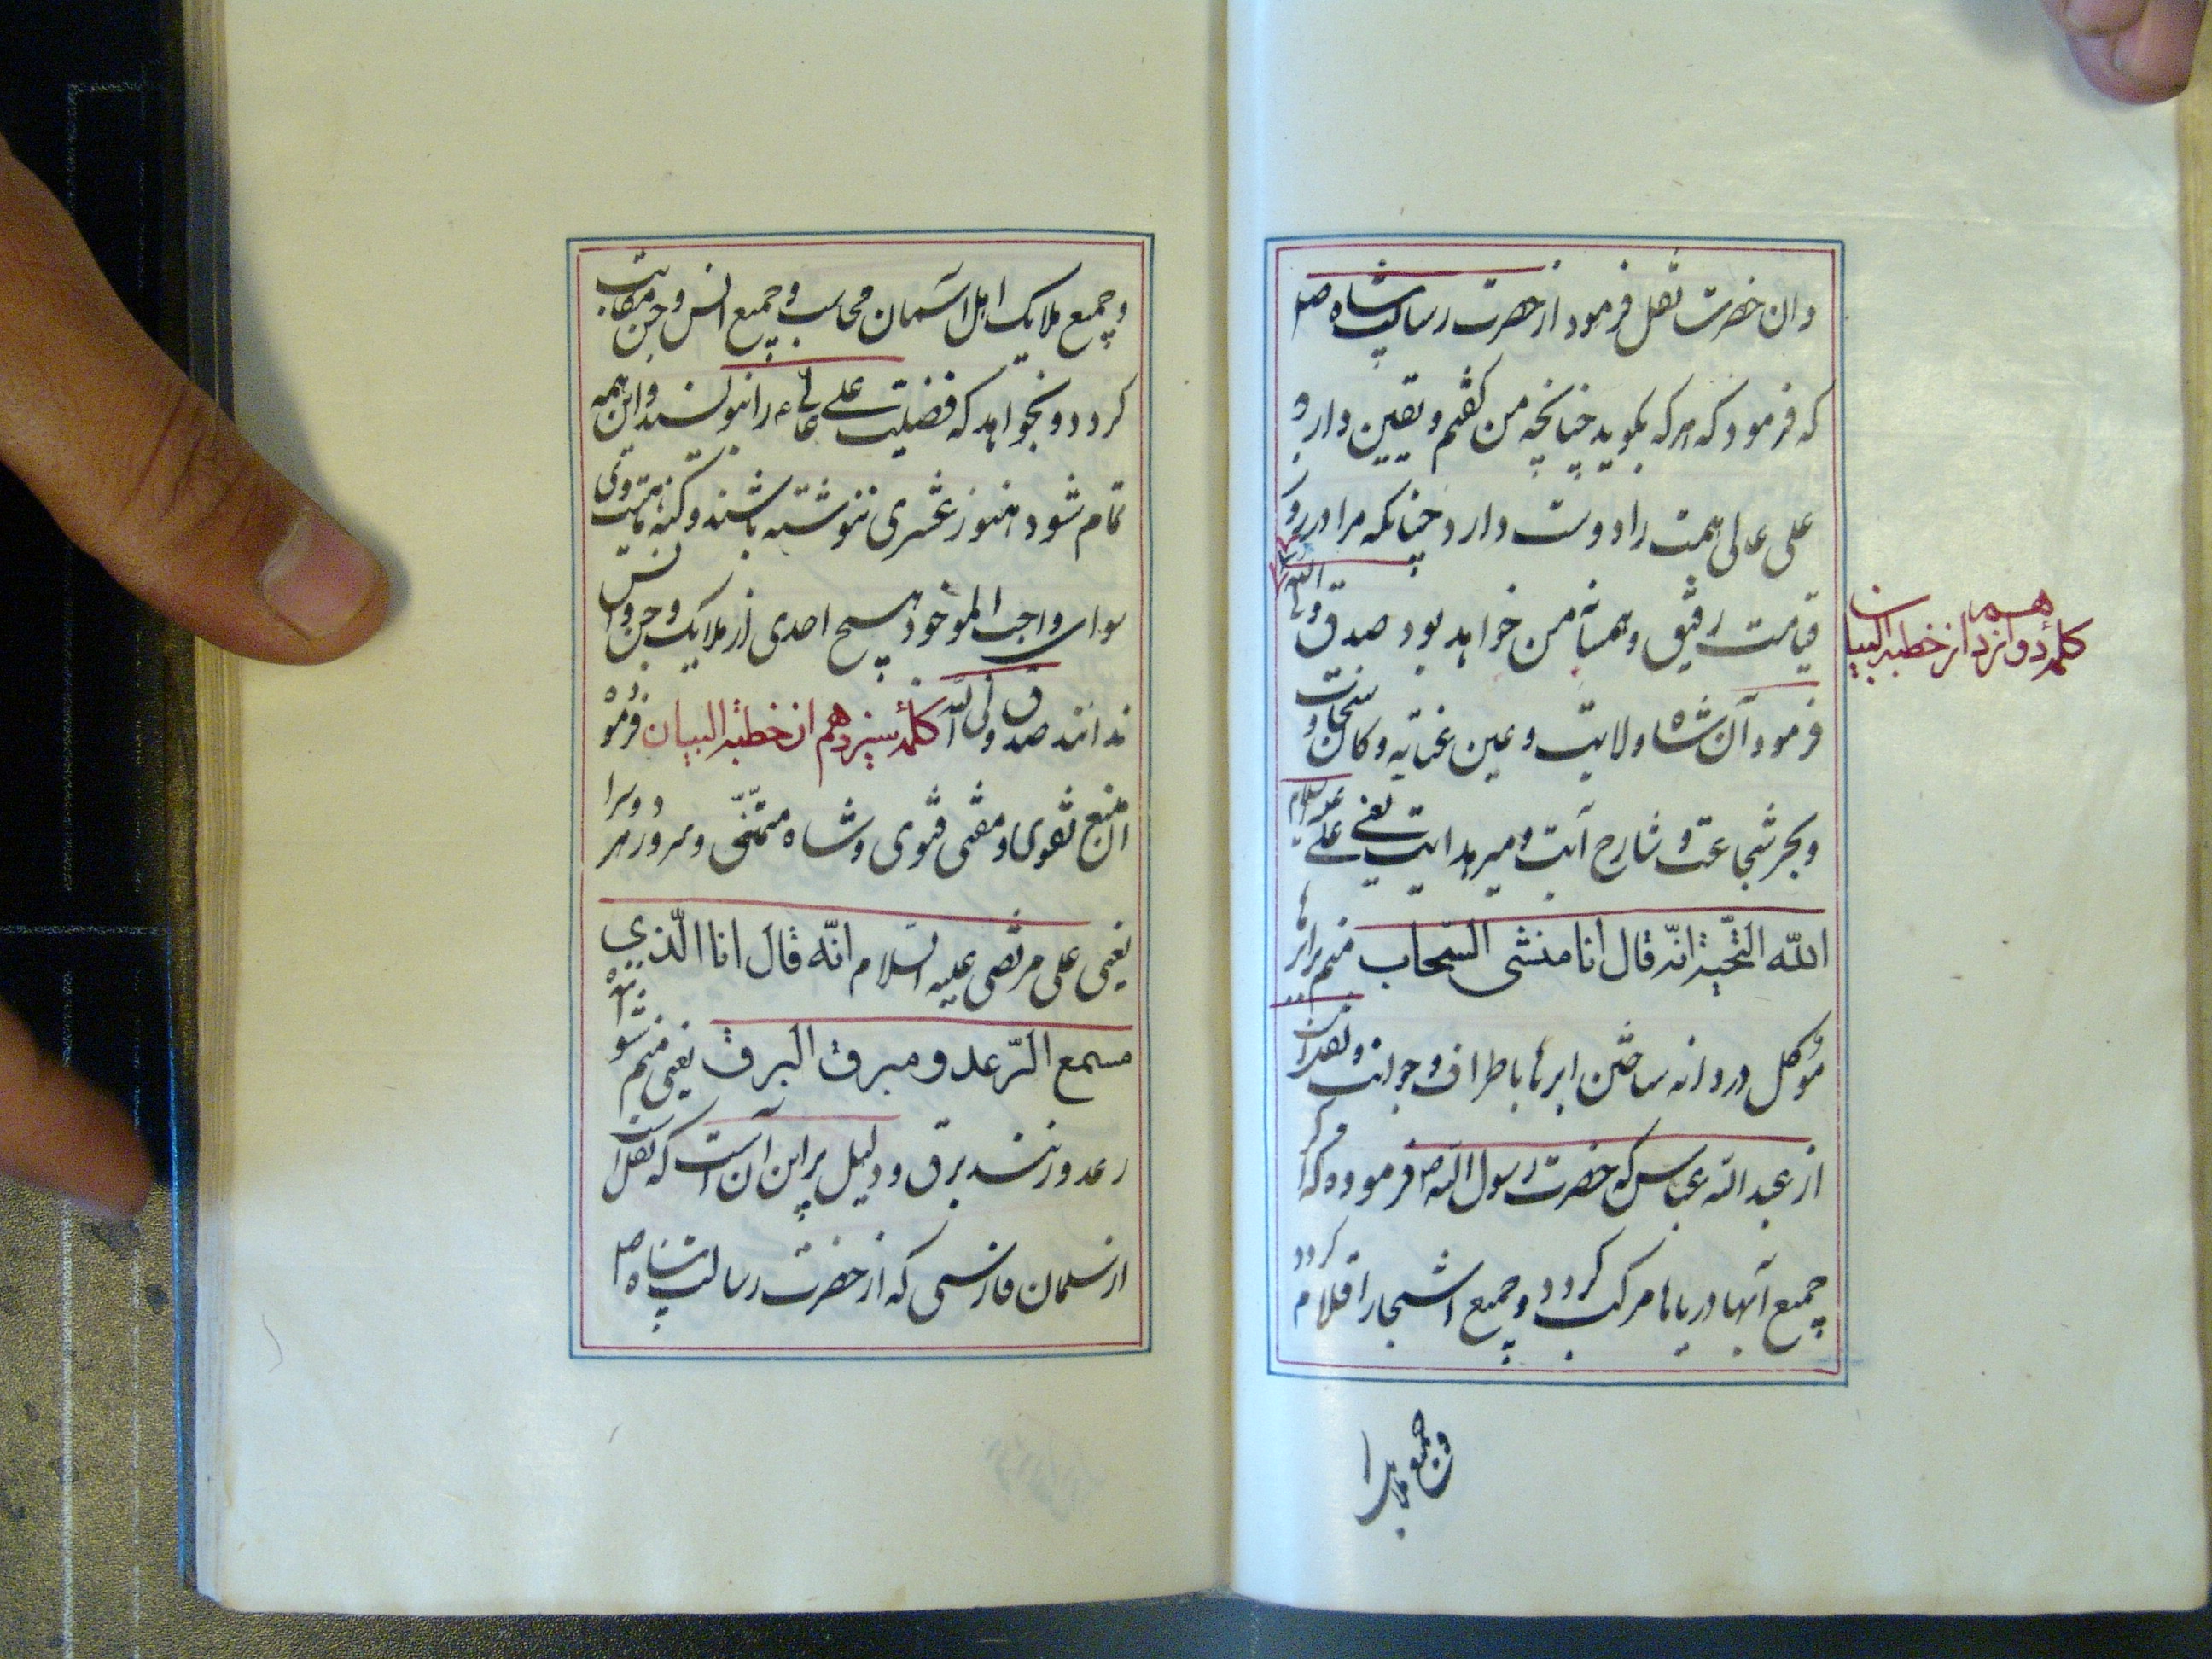 وان حضرت نقل فرمود از حضرت رسالت پناه ص
که فرمود که هر که بگوید چنانچه من گفتم و یقین دارد و
علی عالی همت را دوست دارد چنانکه مرا در روز
قیامت رفیق و همسایه من خواهد بود صدق ولی الله
کلمهٔ دوازدهم از خطبة البیان
فرمود آن شاه ولایت و عین عنایه و کان سخاوت
و بحر شجاعت و شارح آیت و میر هدایت یعنی علی علیه سلام
الله التحیة انه قال انا منشی السحاب منم بر ابرها
موکل و روانه ساختن ابرها باطراف و جوانب و نقلست
از عبد الله عباس که حضرت رسول الله ص فرموده که اگر
جمیع آبها و دریاها مرکب گردد و جمیع اشجار اقلام گردد
و جمیع ملایک
و جمیع ملایک اهل آسمان محاسب و جمیع انس و جن مکاتب
گردد و بخواهد که فضلیت علی عالی ع را بنویسند و این همه
تمام شود هنوز عشری ننوشته باشند و کنه ماهیت وی
سوای واجب الموجود هیچ احدی از ملایک و جن و انس
ندانند صدق ولی الله کلمهٔ سیزدهم از خطبة البیان فرموده
آن منبع تقوی و مفتی فتوی و شاه متمنی و سرور هر دو سرا
یعنی علی مرتضی علیه السلام انّه قال انا الّذی
مسمع الرّعد و مبرق البرق یعنی منم شنواننده
رعد و زننده برق و دلیل بر این آن است که نقل است
از سلمان فارسی که از حضرت رسالت پناه ص